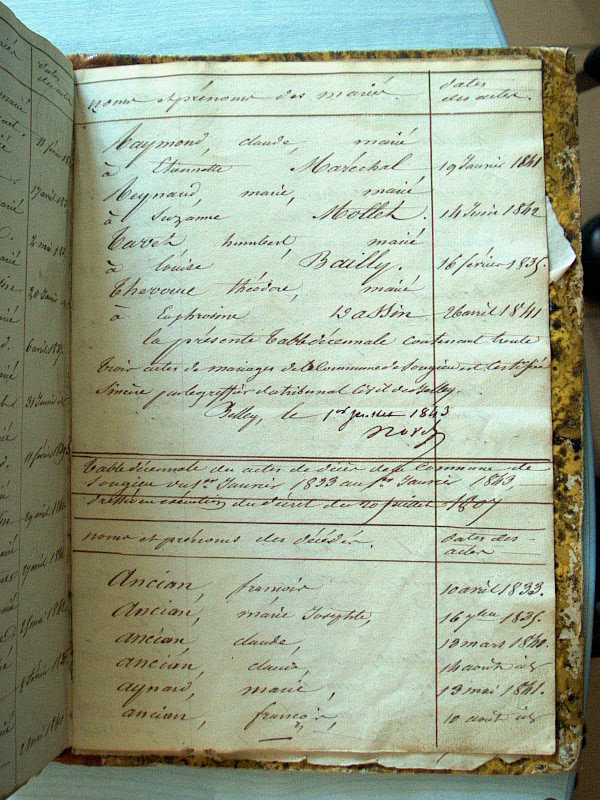 noms et prénoms des mariés. dates des actes.
Raymond, claude, marié
à Etiennette Maréchal 19 Janvier 1841
Reynaud, marie, marié
à Suzanne Mollet. 14 Juin 1842
Tavet, humbert, marié
à Louise Bailly. 16 février 1835.
Thevenne théodore, marié
à Euphrosine Dassin 26 avril 1841
la présente Table décennale contenant trente
trois actes de mariages de la Commune de Songieu est Certifiée
Sincère par le greffier du tribunal Civil de Belley.
Belley, le 1er Janvier 1843
Table décennale des actes de décès de la Commune de
Songieu du 1er Janvier 1833 au 1er Janvier 1843,
dressée en exécution du décret du 20 Juillet 1807
noms et prénoms des décédés. dates des actes
Ancian, françois 10 avril 1833.
Ancian, marie Josephte, 16 9bre 1835.
Ancian, claude, 13 mars 1840.
Ancian, claude, 14 août id
aynard, marie, 13 mai 1841.
ancian, françois, 10 août id